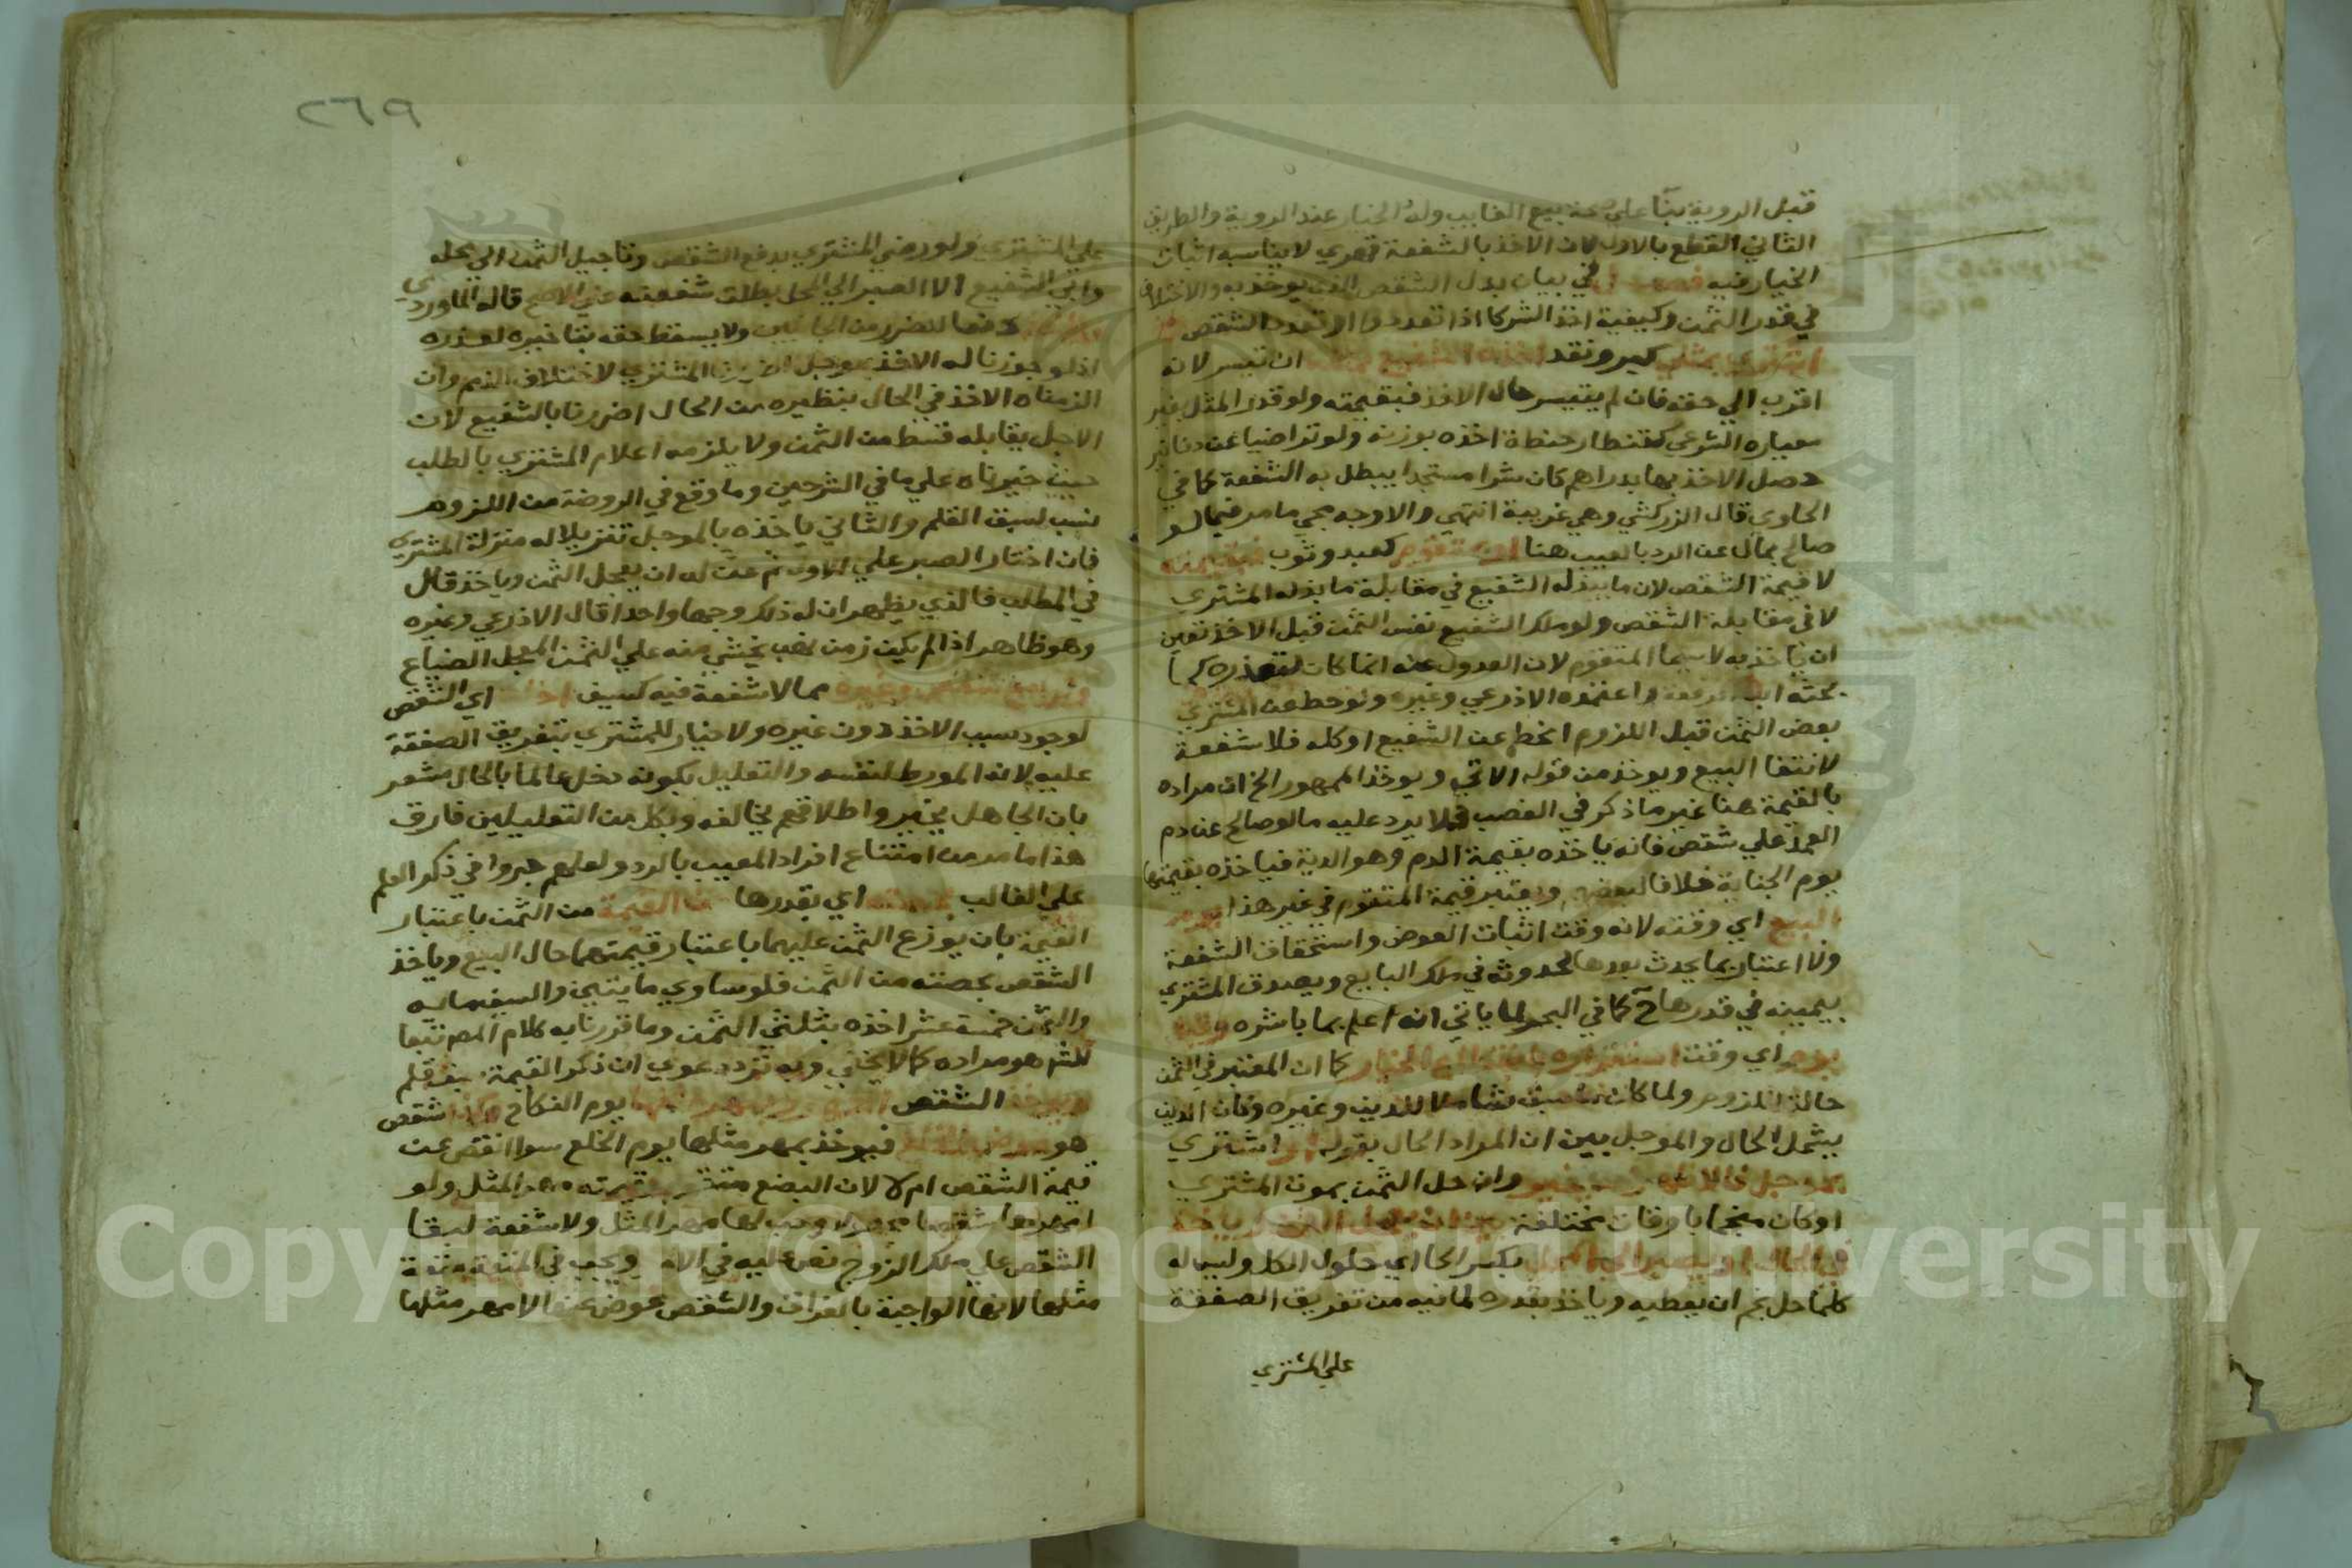 قبل الروية بنآ علي صحة بيع الغايب وله الخيار عند الروية والطريق
الثاني القطع بالاول لان الاخذ بالشفعة قهري لا يناسبه اثبات
الخيار فيه فصل في بيان بدل الشقص الذي يوخذ به والاختلاف
في قدر الثمن وكيفية اخذ الشركا اذا تعددوا او تعدد الشقص
اشتري بمثلي كبر ونقد اخذه الشفيع بمثله ان تيسر لانه
اقرب الي حقه فان لم يتيسر حال الاخذ فبقيمته ولو قدر المثل بغير
معياره الشرعي كقنطار حنطة اخذه بوزنه ولو تراضيا عن دنانير
حصل الاخذ بها بدراهم كان شرا مستجدا يبطل به الشفعة كما في
الحاوي قال الزركشي وهي غريبة انتهي والاوجه مجي ما مر فيما لو
صالح بمال عن الرد بالعيب هنا او بمتقوم كعبد وثوب فبقيمته
لا قيمة الشقص لان ما يبذله الشفيع في مقابلة ما بذله المشتري
لا في مقابلة الشقص ولو ملك الشفيع نفس الثمن قبل الاخذ تعين
ان ياخذ به لا سيما المتقوم لان العدول عنه انما كان لتعذره كما
بحثه ابن الرفعة واعتمده الاذرعي وغيره ولو حط عن المشتري
بعض الثمن قبل اللزوم انحط عن الشفيع او كله فلا شفعة
لانتفا البيع ويوخذ من قوله الاتي ويوخذ الممهور الخ ان مراده
بالقيمة هنا غير ما ذكر في الغصب فلا يرد عليه ما لو صالح عن دم
العمد علي شقص فانه ياخذه بقيمة الدم وهو الدية فياخذه بقيمتها
يوم الجناية خلافا لبعضهم ويعتبر قيمة المتقوم في غير هذا يوم
البيع اي وقته لانه وقت اثبات العوض واستحقاق الشفعة
ولا اعتبار بما يحدث بعدها لحدوثه في ملك البايع ويصدق المشتري
بيمينه في قدرها ح كما في البحر لما ياتي انه اعلم بما باشره وقيل
يوم اي وقت استقراره بانقطاع الخيار كما ان المعتبر في الثمن
حالة اللزوم ولما كان ما سبق شاملا للدين وغيره وكان الدين
يشمل الحال والموجل بين ان المراد الحال بقوله او اشتري
بموجل فالاظهر انه مخير وان حل الثمن بموت المشتري
او كان منجما باوقات مختلفة بين ان يعجل الثمن وياخذ
في الحال او يصبر الي المحل بكسر الحا اي حلول الكل وليس له
كلما حل نجم ان يعطيه وياخذ بقدره لما فيه من تفريق الصفقة
علي المشتري
٢٦٩
علي المشتري ولو رضي المشتري بدفع الشقص وتاجيل الثمن الي محله
وابي الشفيع الا الصبر الي المحل بطلت شفعته علي الاصح قاله الماوردي
دفعا للضرر من الجانبين ولا يسقط حقه بتاخيره لعذره
اذ لو جوزنا له الاخذ بموجل اضررنا المشتري لاختلاف الذمم وان
الزمناه الاخذ في الحال بنظيره من الحال اضررنا بالشفيع لان
الاجل يقابله قسط من الثمن ولا يلزمه اعلام المشتري بالطلب
حيث خيرناه علي ما في الشرحين وما وقع في الروضة من اللزوم
نسب لسبق القلم والثاني ياخذه بالموجل تنزيلا له منزلة المشتري
فان اختار الصبر علي الاول ثم عن له ان يعجل الثمن وياخذ قال
في المطلب فالذي يظهر ان له ذلك وجها واحدا قال الاذرعي وغيره
وهو ظاهر اذا لم يكن زمن نهب يخشي منه علي الثمن المعجل الضياع
ولو بيع شقص وغيره مما لا شفعة فيه كسيف اخذه اي الشقص
لوجود سبب الاخذ دون غيره ولا خيار للمشتري بتفريق الصفقة
عليه لانه المورط لنفسه والتعليل بكونه دخل عالما بالحال مشعر
بان الجاهل يخير واطلاقهم يخالفه وبكل من التعليلين فارق
هذا ما مر من امتناع افراد المعيب بالرد ولعلهم جروا في ذكر العلم
علي الغالب بحصته اي بقدرها من القيمة من الثمن باعتبار
القيمة بان يوزع الثمن عليهما باعتبار قيمتهما حال البيع وياخذ
الشقص بحصته من الثمن فلو ساوي مايتين والسيف ماية
والثمن خمسة عشر اخذه بثلثي الثمن وما قررنا به كلام المص تبعا
للشر هو مراده كما لا يخفي وبه تزدد دعوي ان ذكر القيمة سبق قلم
ويوخذ الشقص الممهور بمهر مثلها يوم النكاح وكذا شقص
هو عوض خلع فيوخذ بمهر مثلها يوم الخلع سوا انقص عن
قيمة الشقص ام لا لان البضع متقوم وقيمته مهر المثل ولو
امهرها شقصا مجهولا وجب لها مهر المثل ولا شفعة لبقا
الشقص علي ملك الزوج نص عليه في الام ويجب في المتعة متعة
مثلها لانها الواجبة بالفراق والشقص عوض عنها لا مهر مثلها